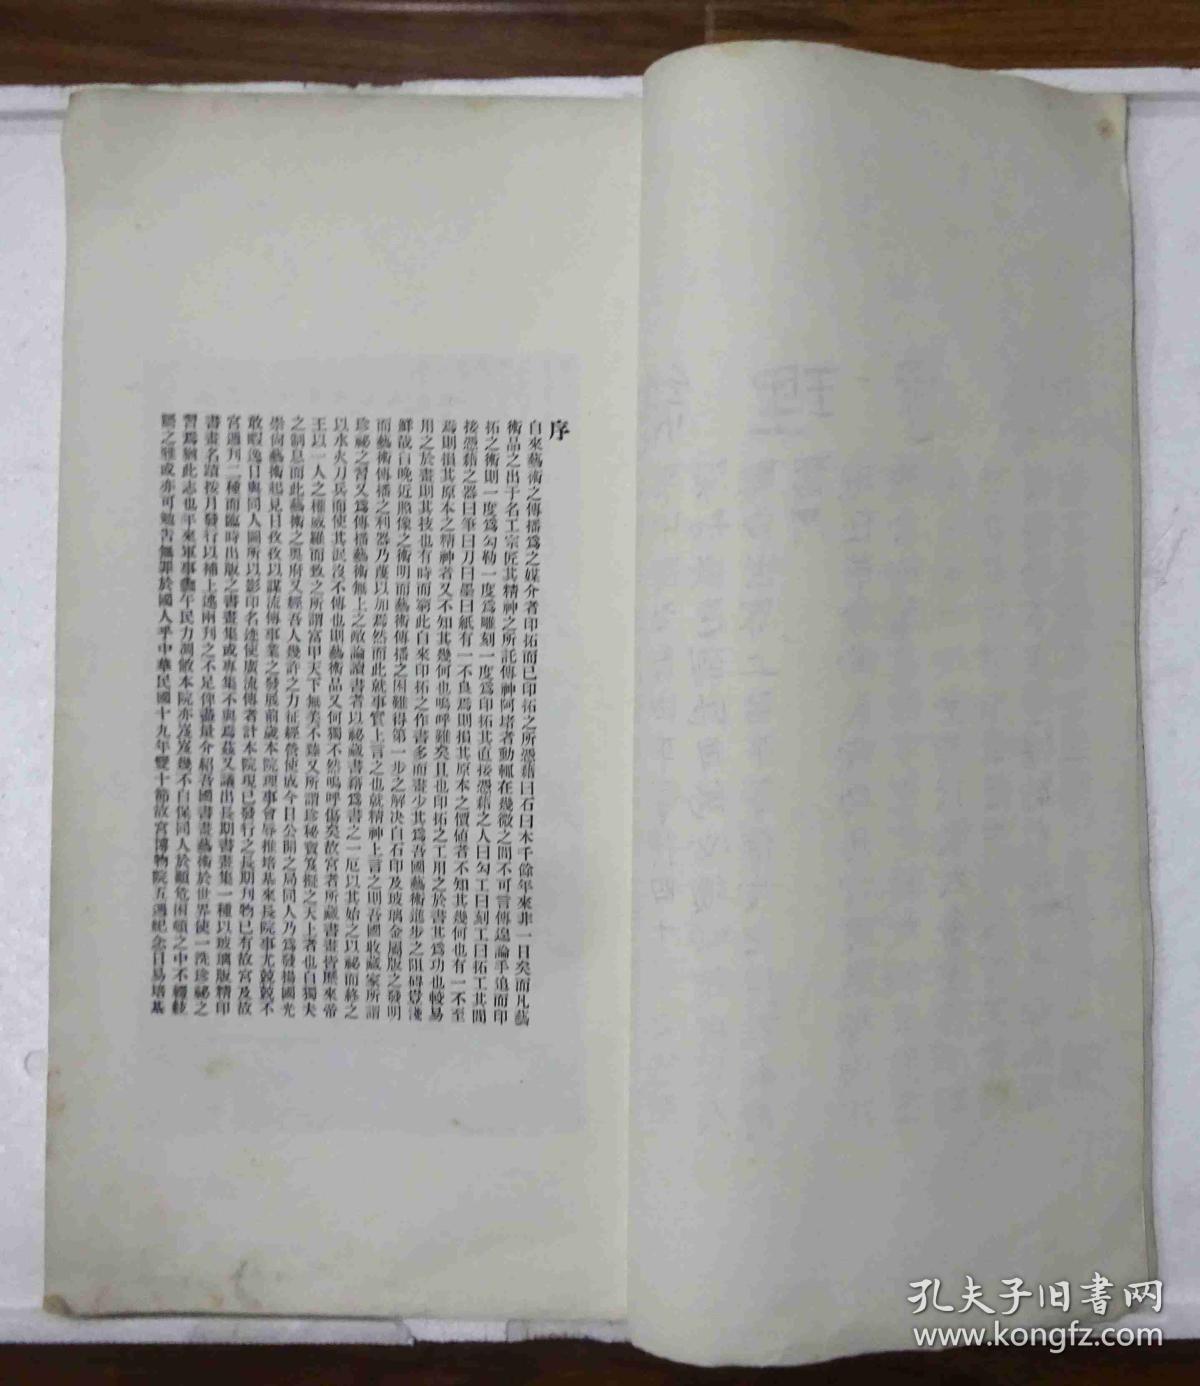 序
自來藝術之傳播爲之媒介者印拓而已印拓之所憑藉曰石曰木千餘年來非一日矣而凡藝
術品之出于名工宗匠其精神之所託傳神阿堵者動輒在幾微之間不可言傳遑論手追而印
拓之術則一度爲勾勒一度爲雕刻一度爲印拓其直接憑藉之人曰勾工曰刻工曰拓工其間
接憑藉之器曰筆曰刀曰墨曰紙有一不良焉則損其原本之價値者不知其幾何也有一不至
焉則損其原本之精神者又不知其幾何也嗚呼難矣且也印拓之工用之於書其爲功也較易
用之於畫則其技也有時而窮此自來印拓之作書多而畫少其爲吾國藝術進步之阻碍豈淺
鮮哉自晚近照像之術明而藝術傳播之困難得第一步之解决自石印及玻璃金屬版之發明
而藝術傳播之利器乃蔑以加焉然而此就事實上言之也就精神上言之則吾國收藏家所謂
珍祕之習又爲傳播藝術無上之敵論讀書者以祕藏書籍爲書之一厄以其始之以祕而終之
以水火刀兵而使其泯沒不傳也則藝術品又何獨不然嗚呼傷矣故宮者所藏書畫皆歷來帝
王以一人之權威羅而致之所謂富甲天下無美不臻又所謂珍秘寶笈擬之天上者也自獨夫
之制息而此藝術之奧府又經吾人幾許之力征經營使成今日公開之局同人乃爲發揚國光
崇尙藝術起見日孜孜以謀流傳事業之發展前歲本院理事會辱推培基來長院事尤兢兢不
敢暇逸日與同人圖所以影印名迹使廣流傳者計本院現已發行之長期刊物已有故宮及故
宮週刊二種而臨時出版之書畫集或專集不與焉茲又議出長期書畫集一種以玻璃版精印
書畫名蹟按月發行以補上述兩刊之不足俾盡量介紹吾國書畫藝術於世界使一洗珍祕之
習焉猶此志也年來軍事旁午民力凋敝本院亦岌岌幾不自保同人於顚危困頓之中不
之雅或亦可勉告無罪於國人乎中華民國十九年雙十節故宮博物院五週紀念日易培基
孔夫子旧书网
www.kongfz.com